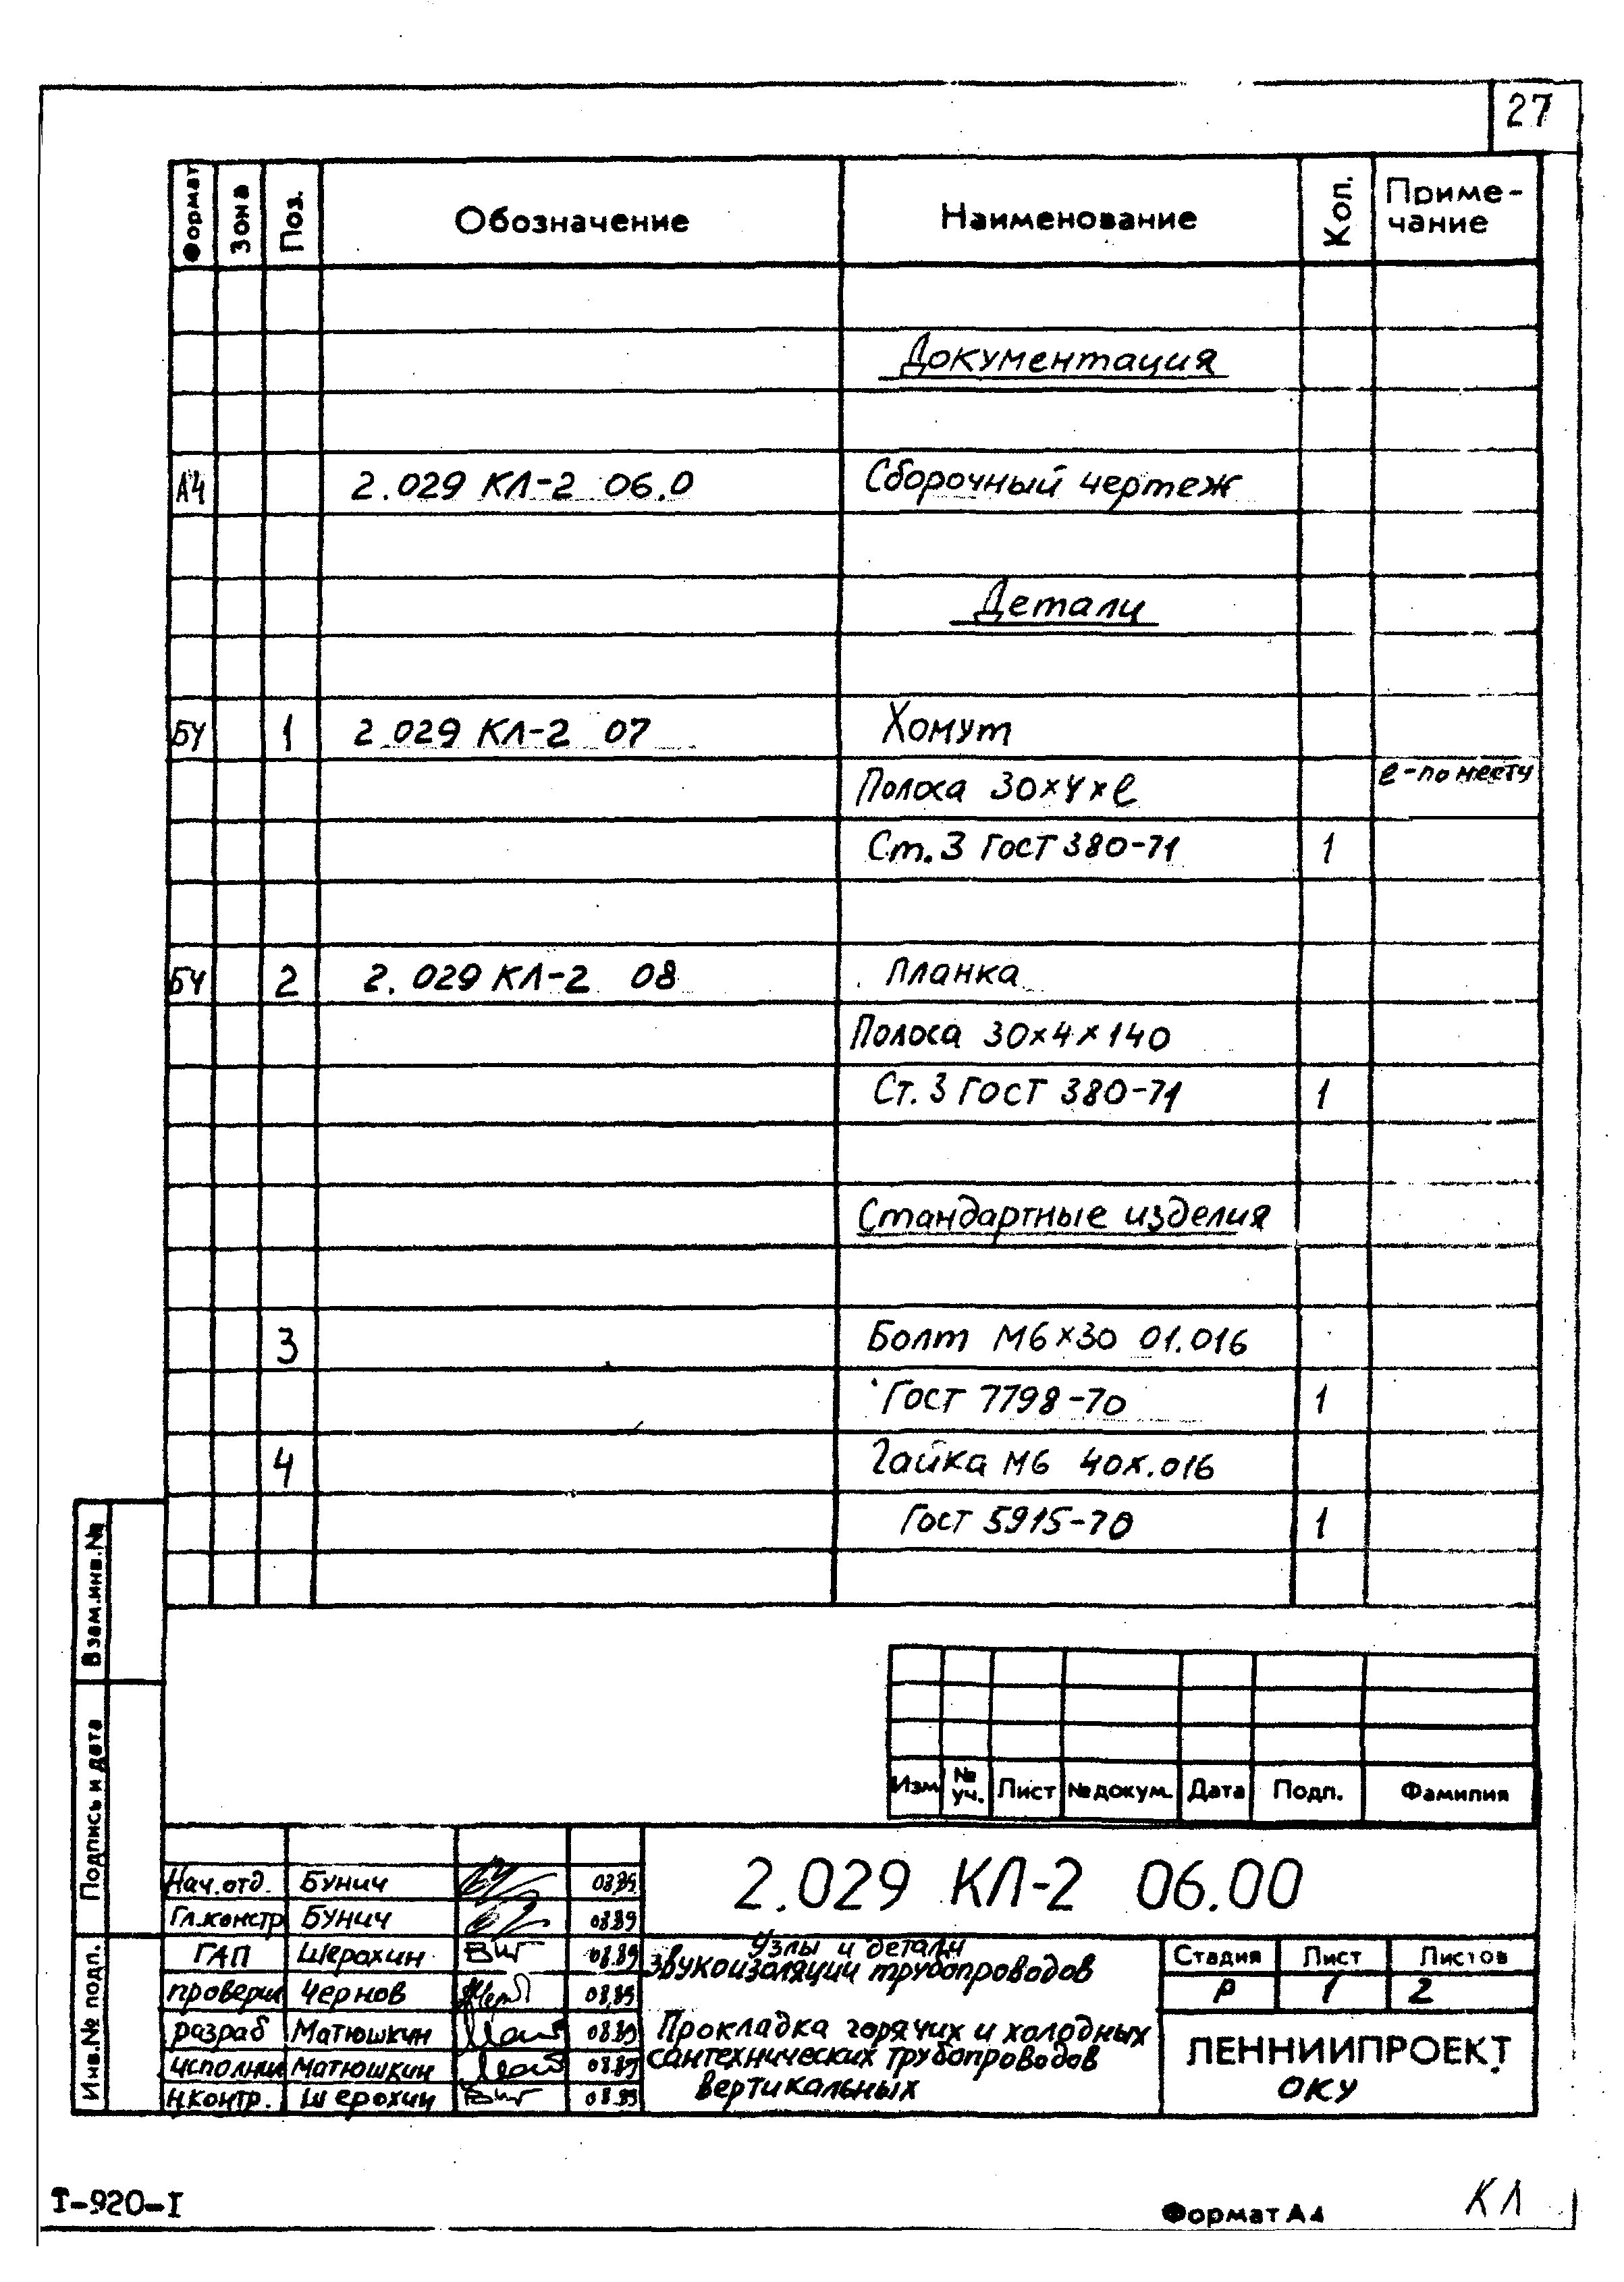 27
Формат Зона Поз. Обозначение Наименование Кол. Приме-
чание
Документация
А4 2.029 КЛ-2 06.0 Сборочный чертеж
Детали
БЧ 1 2.029 КЛ-2 07 Хомут
Полоса 30×4×ℓ ℓ-по месту
Ст.3 ГОСТ 380-71 1
БЧ 2 2.029 КЛ-2 08 Планка
Полоса 30×4×140
Ст.3 ГОСТ 380-71 1
Стандартные изделия
3 Болт М6×30 01.016
ГОСТ 7798-70 1
4 Гайка М6 40х.016
ГОСТ 5915-70 1
Взам.инв.№
Подпись и дата
Инв.№ подл.
Изм № уч. Лист №докум. Дата Подп. Фамилия
2.029 КЛ-2 06.00
Нач.отд. Бунич 08.89
Гл.констр Бунич 08.89
ГАП Шерохин 08.89
проверил Чернов 08.89
разраб Матюшкин 08.89
исполнил Матюшкин 08.89
Н.контр. Шерохин 08.89
Узлы и детали
звукоизоляции трубопроводов
Прокладка горячих и холодных
сантехнических трубопроводов
вертикальных
Стадия Лист Листов
Р 1 2
ЛЕННИИПРОЕКТ
ОКУ
Т-920-I
Формат А4
КЛ